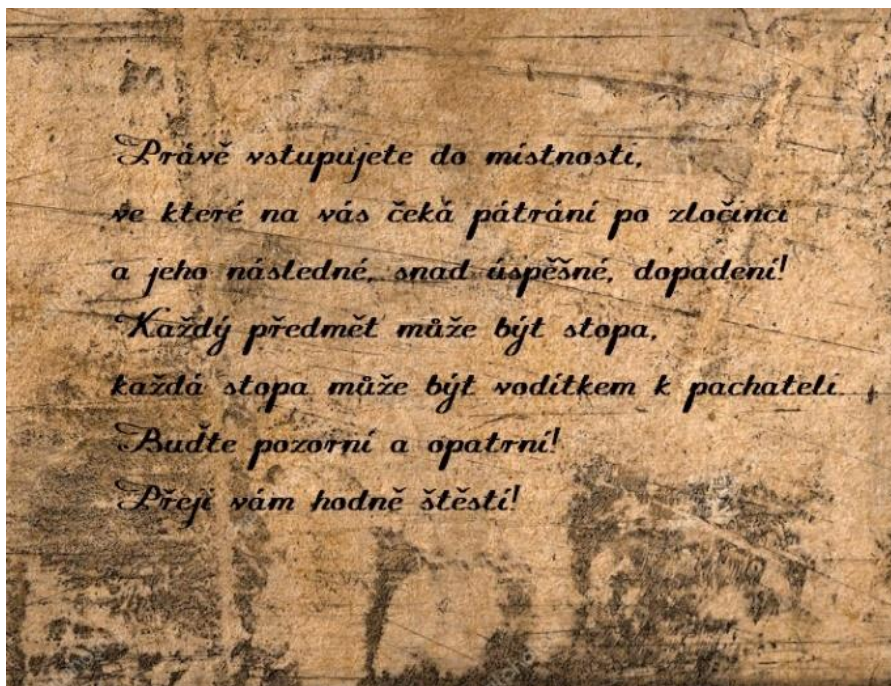 Právě vstupujete do místnosti,
ve které na vás čeká pátrání po zločinci
a jeho následné, snad úspěšné, dopadení!
Každý předmět může být stopa,
každá stopa může být vodítkem k pachateli.
Buďte pozorní a opatrní!
Přeji vám hodně štěstí!